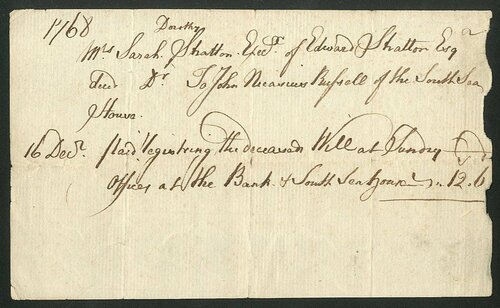 1768
Dorothy
Mrs Sarah Stratton Execx. of Edward Stratton Esqr
decd Dr To John Nicasius Russell of the South Sea
House
16 Decr. paid registring the deceaseds Will at Sundry
Offices at the Bank & South Sea house 12.6